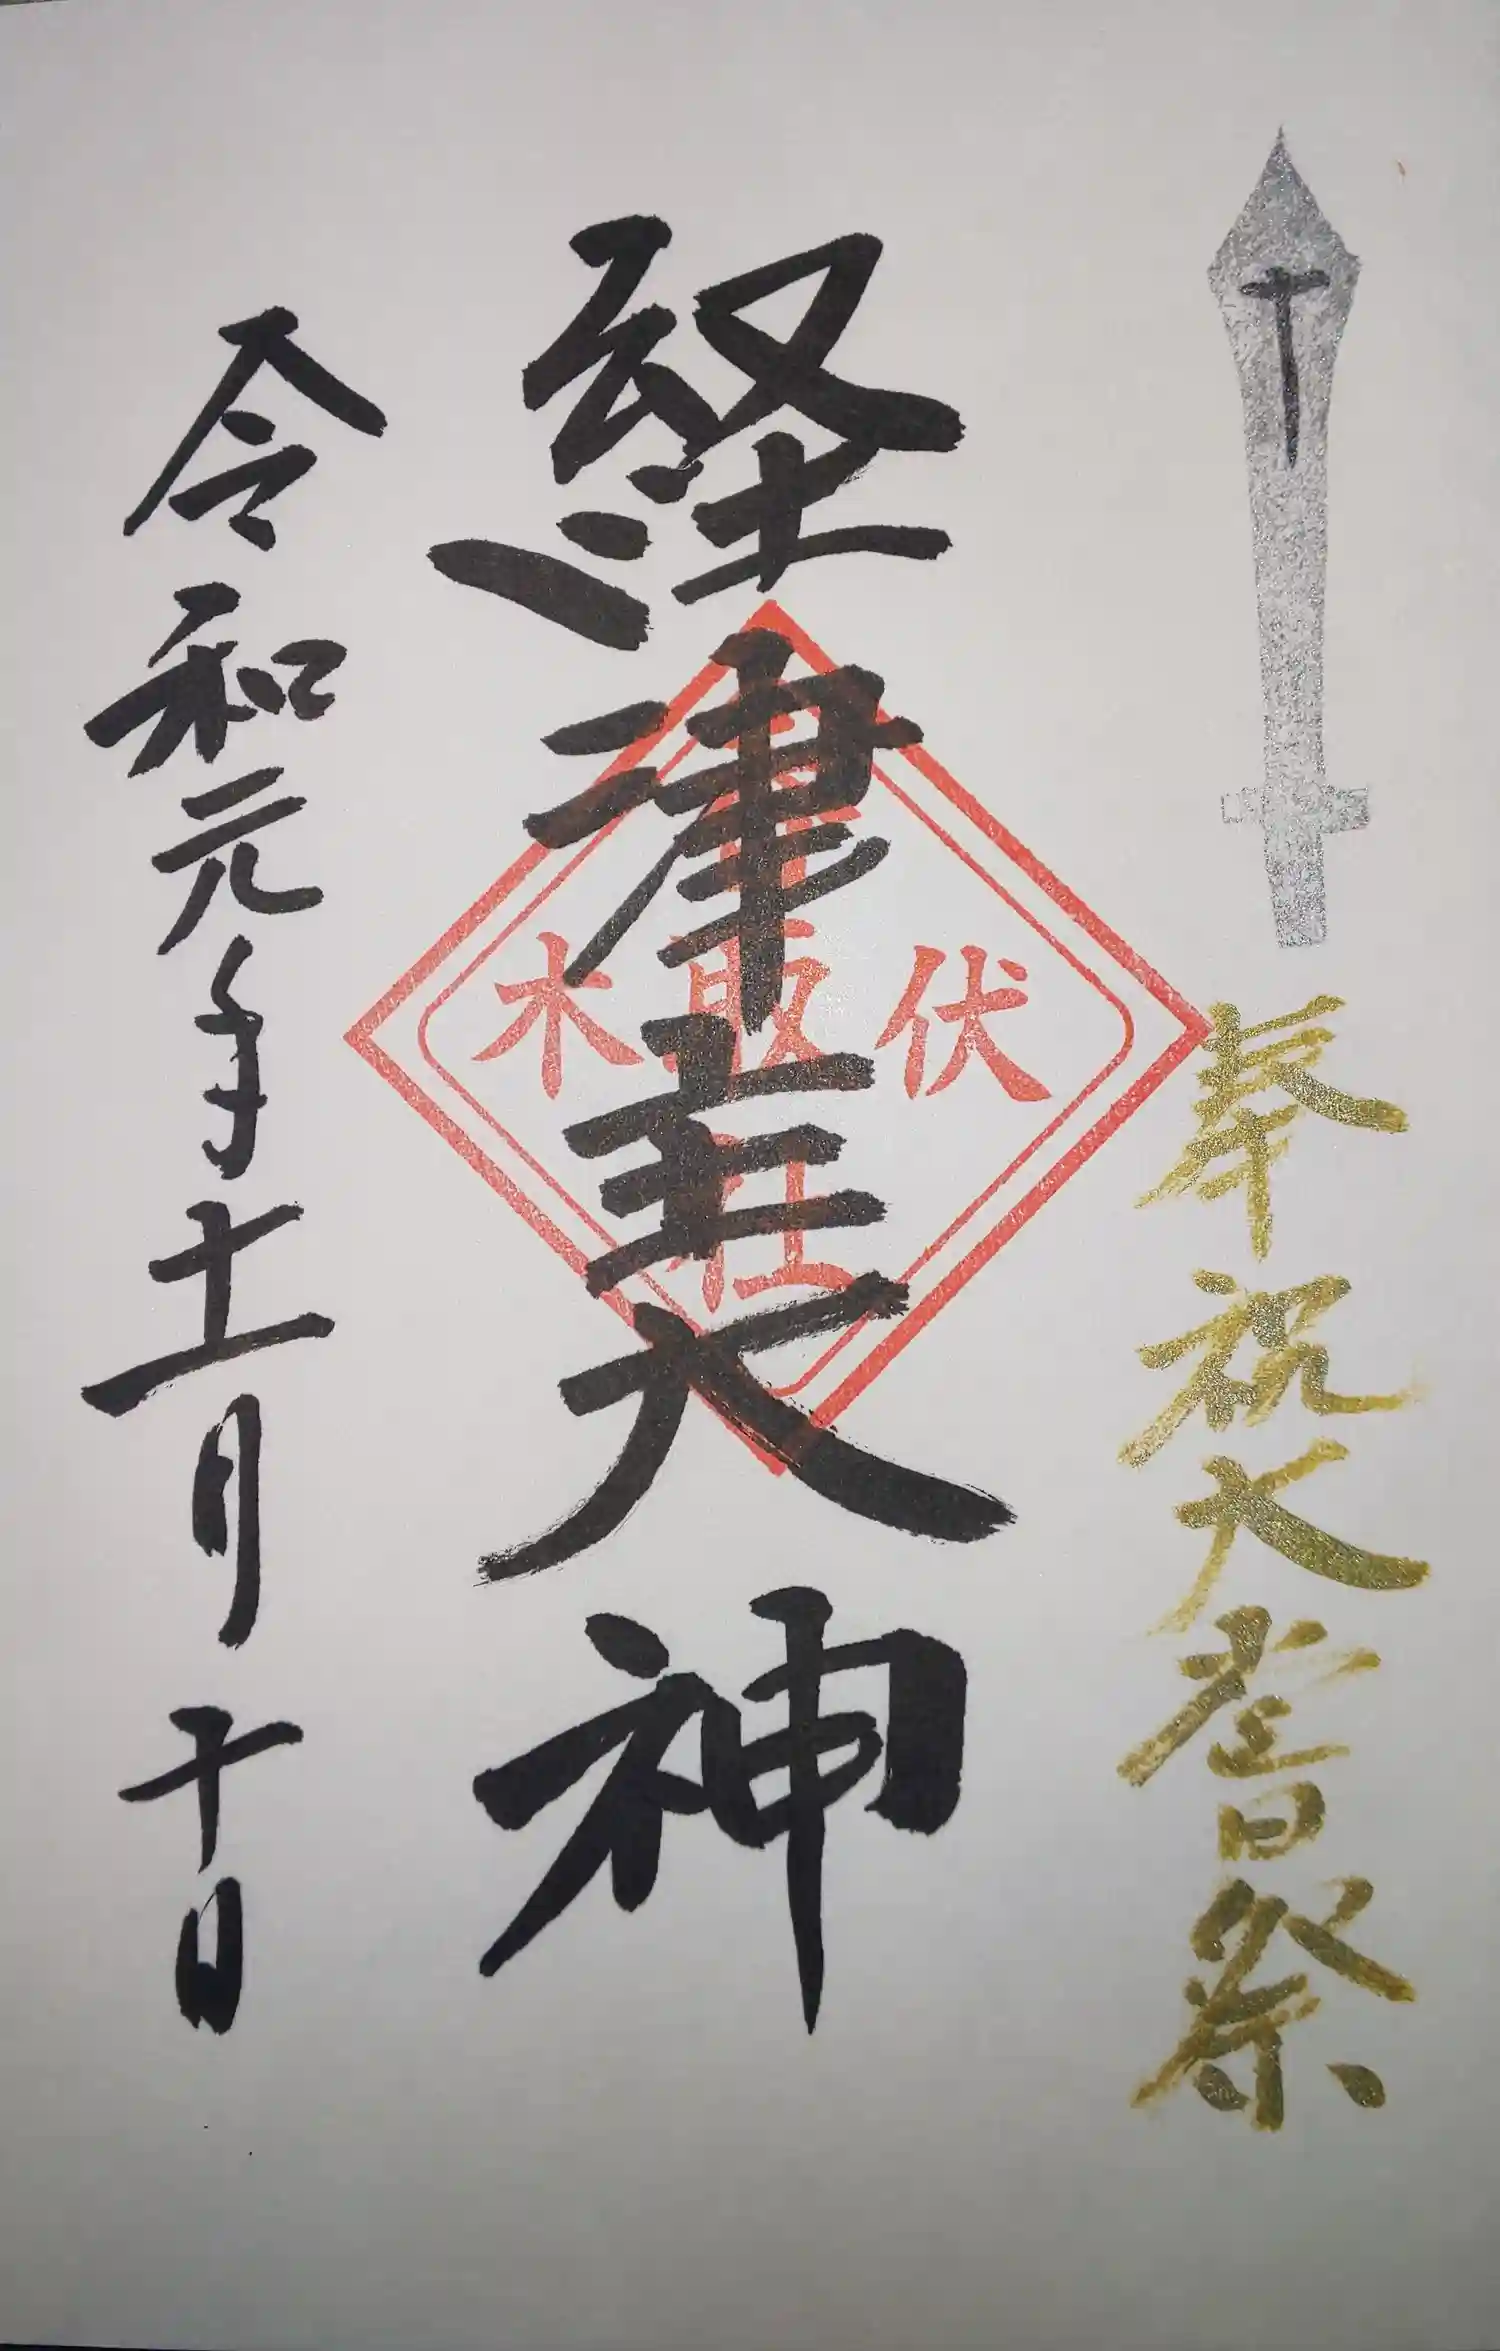 奉祝大嘗祭
経津主大神
伏木
香取社
令和元年十一月十日